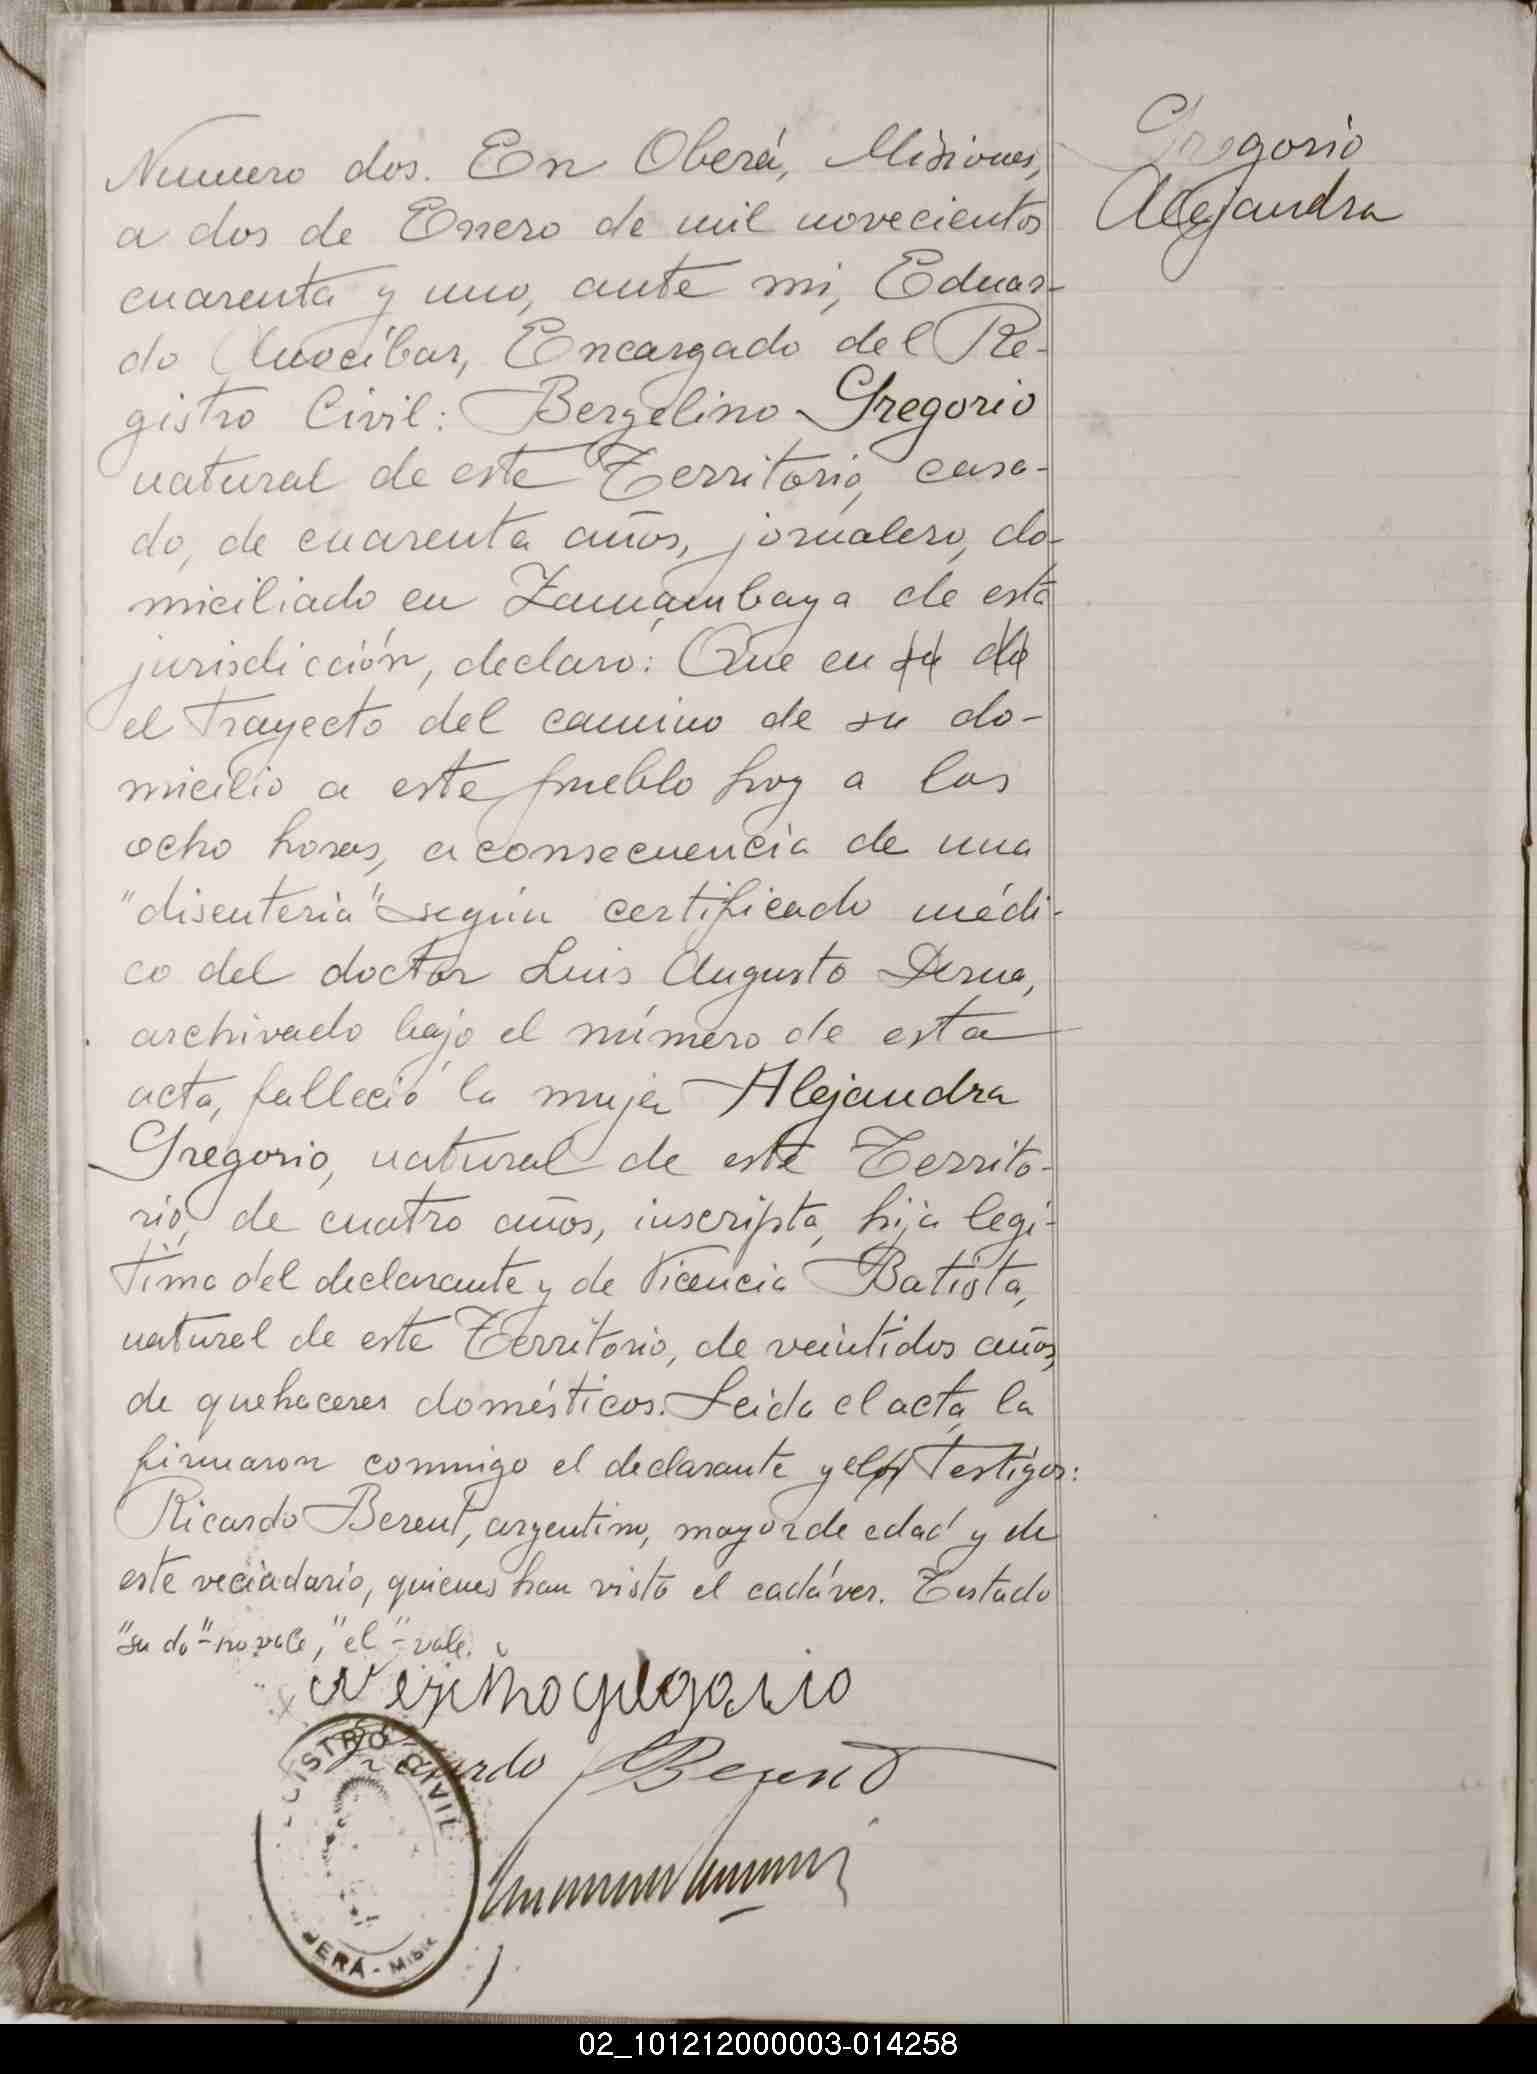 Numero dos. En Oberá, Misiones,
a dos de Enero de mil novecientos
cuarenta y uno, ante mi, Eduar-
do Anocíbar, Encargado del Re-
gistro Civil: Bergelino Gregorio
natural de este Territorio, casa-
do, de cuarenta años, jornalero, do-
miciliado en Zamambaya de esta
jurisdicción, declaro: Que en su do
el trayecto del camino de su do-
micilio a este pueblo hoy a las
ocho horas, a consecuencia de una
"disenteria" según certificado médi-
co del doctor Luis Augusto Derna,
archivado bajo el número de esta
acta, falleció la mujer Alejandra
Gregorio, natural de este Territo-
rio, de cuatro años, inscripta, hija legi-
tima del declarante y de Vicencia Batista,
natural de este Territorio, de veintidos años,
de quehaceres domésticos. Leida el acta, la
firmaron conmigo el declarante y el testigos:
Ricardo Berent, argentino, mayor de edad y de
este veciadario, quienes han visto el cadáver. Testado
"su do"-no vale, "el"-vale.
Gregorio
Alejandra
Ricardo Berent
REGISTRO CIVIL
OBERÁ - Misio
02_101212000003-014258